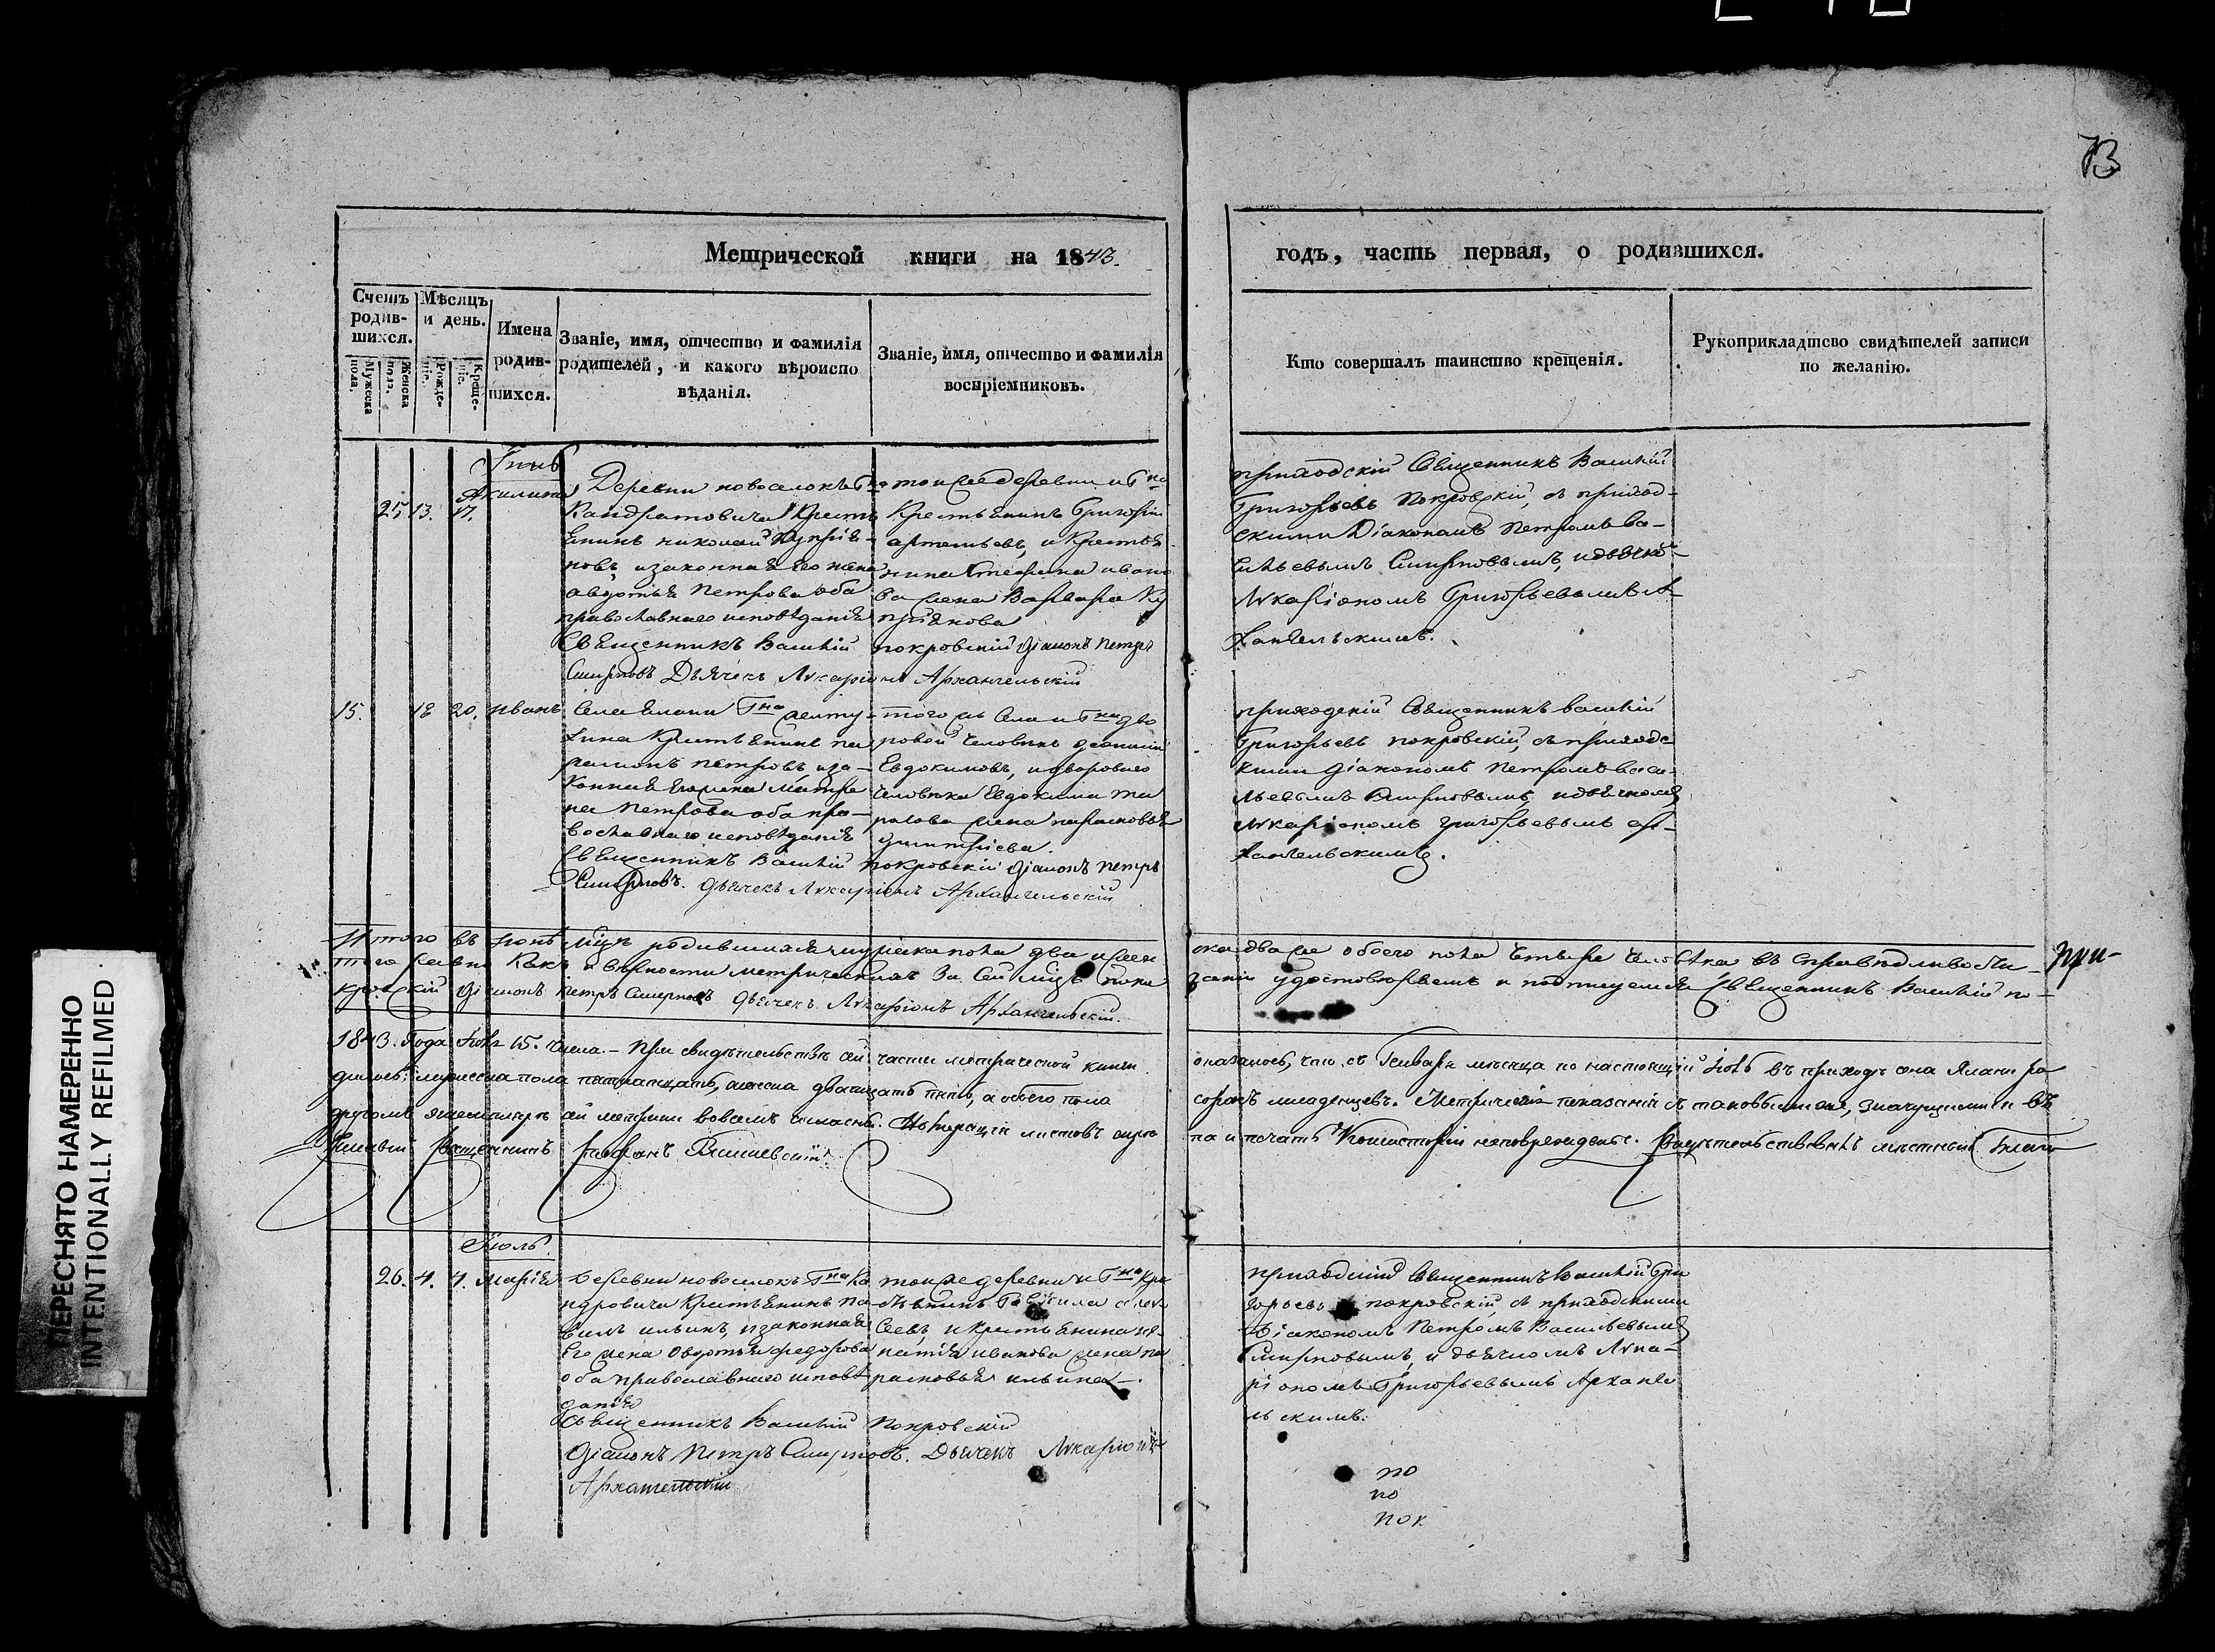 73
Метрической книги на 1843.
годъ, часть первая, о родившихся.
Счетъ родив-шихся.
Мужеска пола.
Женска пола.
Мѣсяцъ и день.
Рожде-ніе.
Креще-ніе.
Имена родив-шихся.
Званіе, имя, отчество и фамилія
родителей, и какого вѣроиспо
вѣданія.
Званіе, имя, отчество и фамилія
воспріемниковъ.
Кто совершалъ таинство крещенія.
Рукоприкладтсво свидѣтелей записи
по желанію.
Іюнь
25. 13. 17. Акилина
Деревни новоселокъ Гна
Кандратовича Крестъ
янинъ николай Купрія-
новъ, изаконная его жена
авдотья Петрова оба
православнаго исповѣданія
Священникъ Василій Покровскій Діаконъ Петръ
Смирновъ Дьячекъ Лукаріонъ Архангельскій
тоиже деревни и Гна
Крестьянинъ Григорій
артемьевъ, и Крестья
нина ивано
ва жена Варвара Ку
пріянова
приходскій Священникъ Василій
Григорьевъ Покровскій, съ приход-
скими Діакономъ Петромъ Ва-
сильевымъ Смирновымъ, идьячко
Лукаріономъ Григорьевымъ Ар
хангельскимъ.
15. 18 20. Иванъ
Села Гна
Крестьянинъ
Петровъ, иза-
конная Его жена Матре
на Петрова оба пра-
вославнаго исповѣданія
Священникъ Василій Покровскій Діаконъ Петръ
Смирновъ. Дьячекъ Лукаріонъ Архангельскій
того жъ Села и Гна дво
ровой человѣкъ
Евдокимовъ, идвороваго
человѣка Евдокима
жена парасковья
дмитріева.
приходскій Священникъ василій
Григорьевъ покровскій, съ приходс
кими діакономъ Петромъ васи-
льевымъ Смирновымъ, идьячкомъ
Лукаріономъ григорьевымъ ар-
хангельскимъ.
Итого въ Іюнѣ Мцѣ родившихся мужеска пола два ижен
ска два же обоего пола Четыре Человѣка въ справѣдливости при-
того равно Какъ и вѣрности метрическихъ За Сей Мцъ пока
заній удостовѣряемъ и подписуемся Священникъ Василій по-
кровскій Діаконъ Петръ Смирновъ Дьячекъ Лукаріонъ Архангельскій.
1843. Года Іюля 15. числа. – При свидѣтельствѣ сей части метрической книги
оказалось, что съ Генваря мѣсяца по настоящій Іюль въ приходѣ села Ялани ро
дилось: мужеска пола пятнадцать, женска двадцать пять, а обоего пола
сорокъ младенцевъ. Метрическія показанія съ таковыми же, значущимися въ
другомъ экземплярѣ сей метрики вовсемъ согласны. Нумерація листовъ
па и печать Консисторіи неповреждены. Свидѣтельствовалъ мѣстный Благо
чинный Священникъ
Іюль.
26. 4. 4. Марія
Деревни новоселокъ Гна Ка
ндровича Крестьянинъ Па
велъ ильинъ, изаконная
Его жена Овдотья федорова
оба православнаго исповѣ
данія
Священникъ Василій Покровскій
Діаконъ Петръ Смирновъ. Дьячекъ Лукаріонъ
Архангельскій
тоиже деревни и Гна Кре
стьянинъ Гаврила алек
сеевъ, и крестьянина иг-
натія иванова жена па
расковья ильина.
приходскій Священникъ Василій Гри
горьевъ покровскій, съ приходскими
Діакономъ Петромъ Васильевымъ
Смирновымъ, и дьячкомъ Лука-
ріономъ Григорьевымъ Арханге
льскимъ.
по
по
пок
ПЕРЕСНЯТО НАМЕРЕННО
INTENTIONALLY REFILMED.